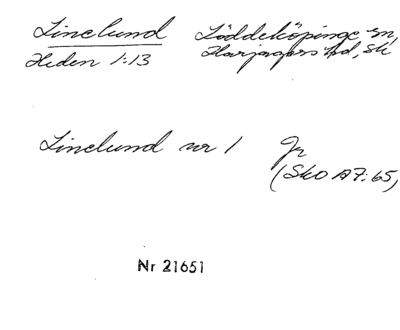 Linelund Löddeköpinge sn,
Heden 1:13 Harjagers hd, Sk
Linelund nr 1 Jr
(Sko A7:65)
Nr 21651